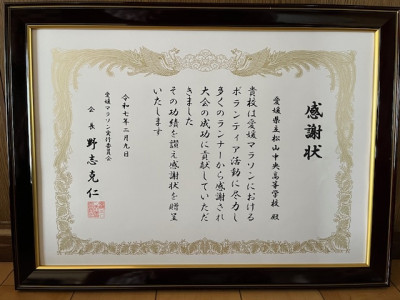 感謝状
愛媛県立松山中央高等学校 殿
貴校は愛媛マラソンにおける
ボランティア活動に尽力し
多くのランナーから感謝され
大会の成功に貢献していただ
きました
その功績を讃え感謝状を贈呈
いたします
令和七年二月九日
愛媛マラソン実行委員会
会長 野志克仁